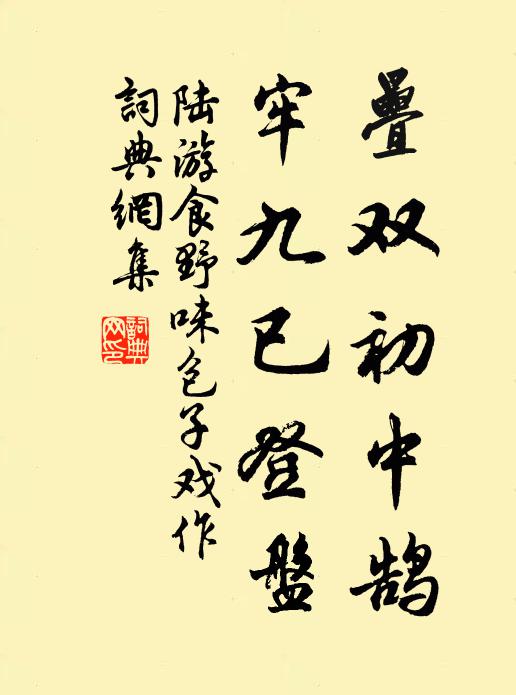 疊双初中鹄
牢九已登盤
陆游食野味包子戏作
詞典網集
詞典网印